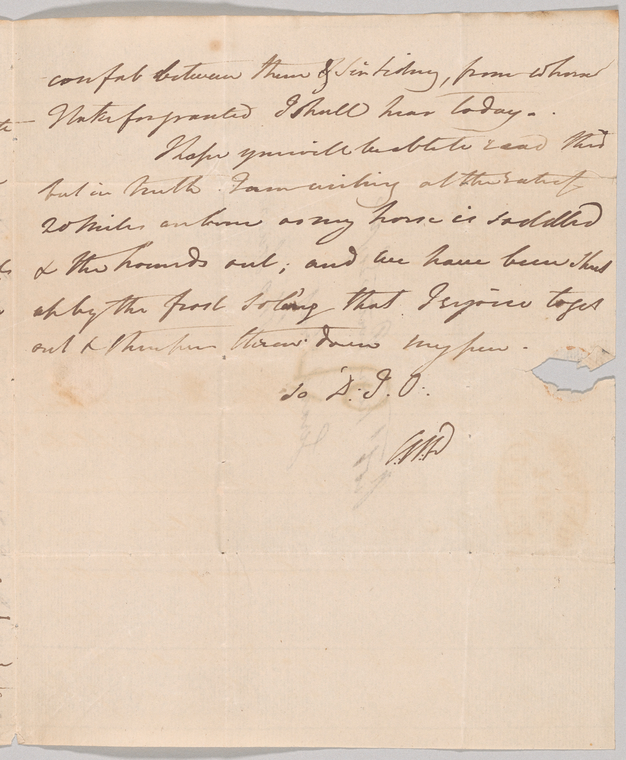 confab between them & Sir Sidney, from whom
I take for granted I shall hear today.
I hope you will be able to read this
but in truth I am writing at the rate of
20 miles an hour as my horse is saddled
& the hounds out; and we have been shut
up by the frost so long that I rejoice to get
out & therefore throw down my pen.
so D. I. O.